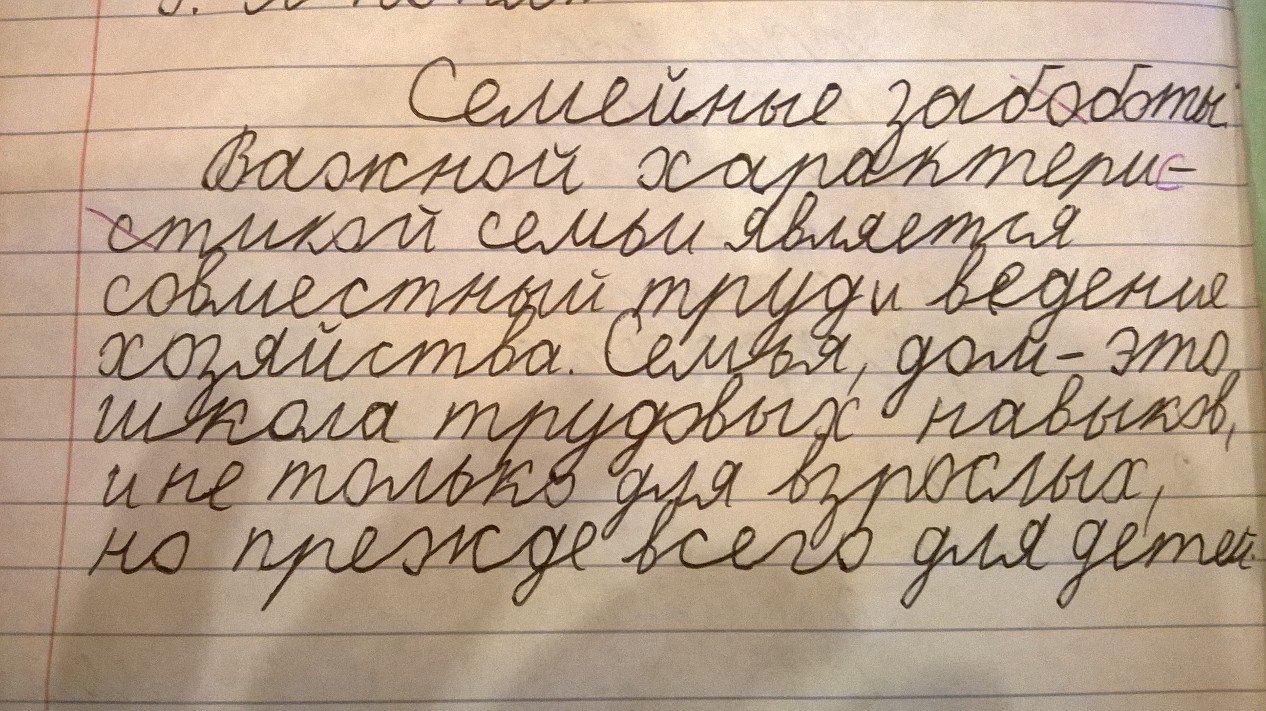 Семейные забоботы.
Важной характери-
стикой семьи является
совместный труд и ведение
хозяйства. Семья, дом - это
школа трудовых навыков,
и не только для взрослых,
но прежде всего для детей.